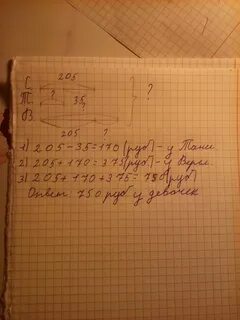 205
С
? ?
Т 35
В
205 ?
1) 205-35=170 (руб) - у Тани.
2) 205+170=375 (руб) - у Веры.
3) 205+170+375=750 (руб)
Ответ: 750 руб у девочек